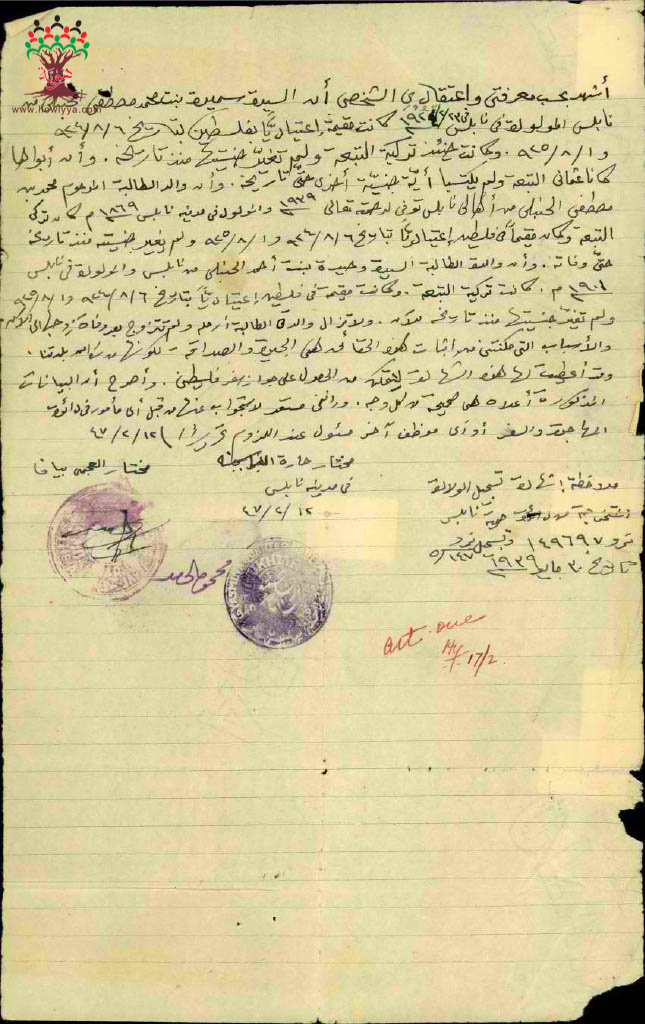 howiyya
www.howiyya.com
أشهد بحسب معرفتي واعتقادي الشخصي أن السيدة سميرة بنت محمد مصطفى الحنبلي من
نابلس المولودة في نابلس في ٢٣ كانت مقيمة إعتيادياً بفلسطين بتاريخ ٩٢٤/٨/٦
و ٩٢٥/٨/١ . وكانت حينئذ تركية التبعة ولم تغير جنسيتها منذ تاريخه . وأن أبواها
كانا عثماني التبعة ولم يكتسبا أية جنسية أخرى حتى تاريخه . وأن والد الطالبة المرحوم محمد بن
مصطفى الحنبلي من أهالي نابلس توفي لرحمته تعالى ١٩٣٩ والمولود في مدينة نابلس ١٨٦٩ م كان تركي
التبعة وكان مقيماً في فلسطين إعتيادياً بتاريخ ٩٢٤/٨/٦ و ٩٢٥/٨/١ ولم يغير جنسيته منذ تاريخه
حتى وفاته . وأن والدة الطالبة السيدة وحيدة بنت أحمد الحنبلي من نابلس والمولودة في نابلس
١٩٠١ م . كانت تركية التبعة . وكانت مقيمة في فلسطين إعتيادياً بتاريخ ٩٢٤/٨/٦ و ٩٢٥/٨/١
ولم تغير جنسيتها منذ تاريخه للآن . ولا تزال والدة الطالبة أرملة ولم تتزوج بعد وفاة زوجها الى الآن
والأسباب التي مكنتني من إثبات هذه الحقائق هي الجيرة والصداقة لكونها من بلدتنا .
وقد أعطيت لها هذه الشهادة لتتمكن من الحصول على جواز سفر فلسطيني . وأصرح أن البيانات
المذكورة أعلاه هي صحيحة من كل وجه . وإنني مستعد للاستجواب عنها من قبل أي مأمور في دائرة
المهاجرة والسفر أو أي موظف آخر مسئول عند اللزوم تحريراً ٤٧/٢/١٢
مختار حارة
في مدينة نابلس
٤٧/٢/١٢
مختار العجمي بيافا
ملاحظة : شهادة تسجيل الولادة
المستخرجة من صحية نابلس
نمرو ١٤٩٦٩٧ وتسجيل نمرو
تاريخ ٣٠ مايو ١٩٣٩
art. one
17/2